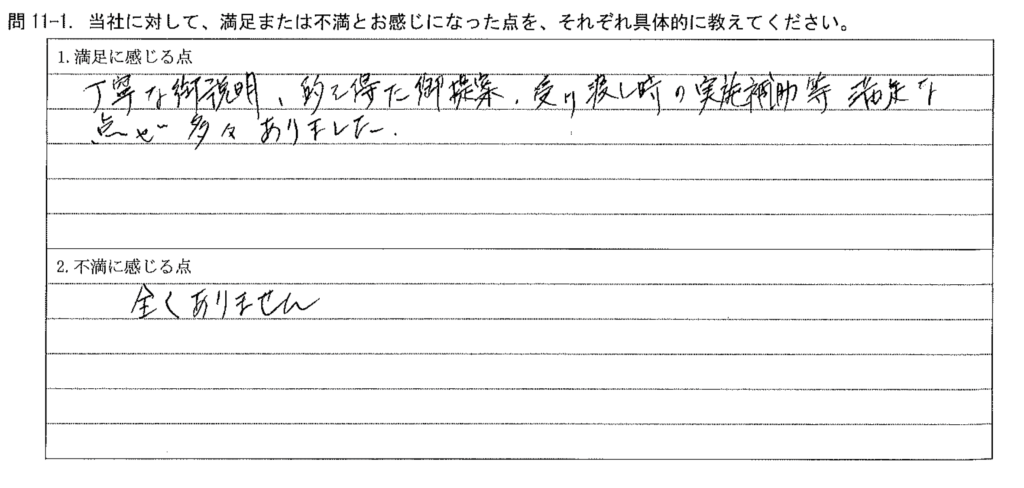 問 11-1. 当社に対して、満足または不満とお感じになった点を、それぞれ具体的に教えてください。
1. 満足に感じる点
丁寧な御説明、的を得た御提案、受け渡し時の実施補助等 満足な
点が 多々 ありました。
2. 不満に感じる点
全くありません